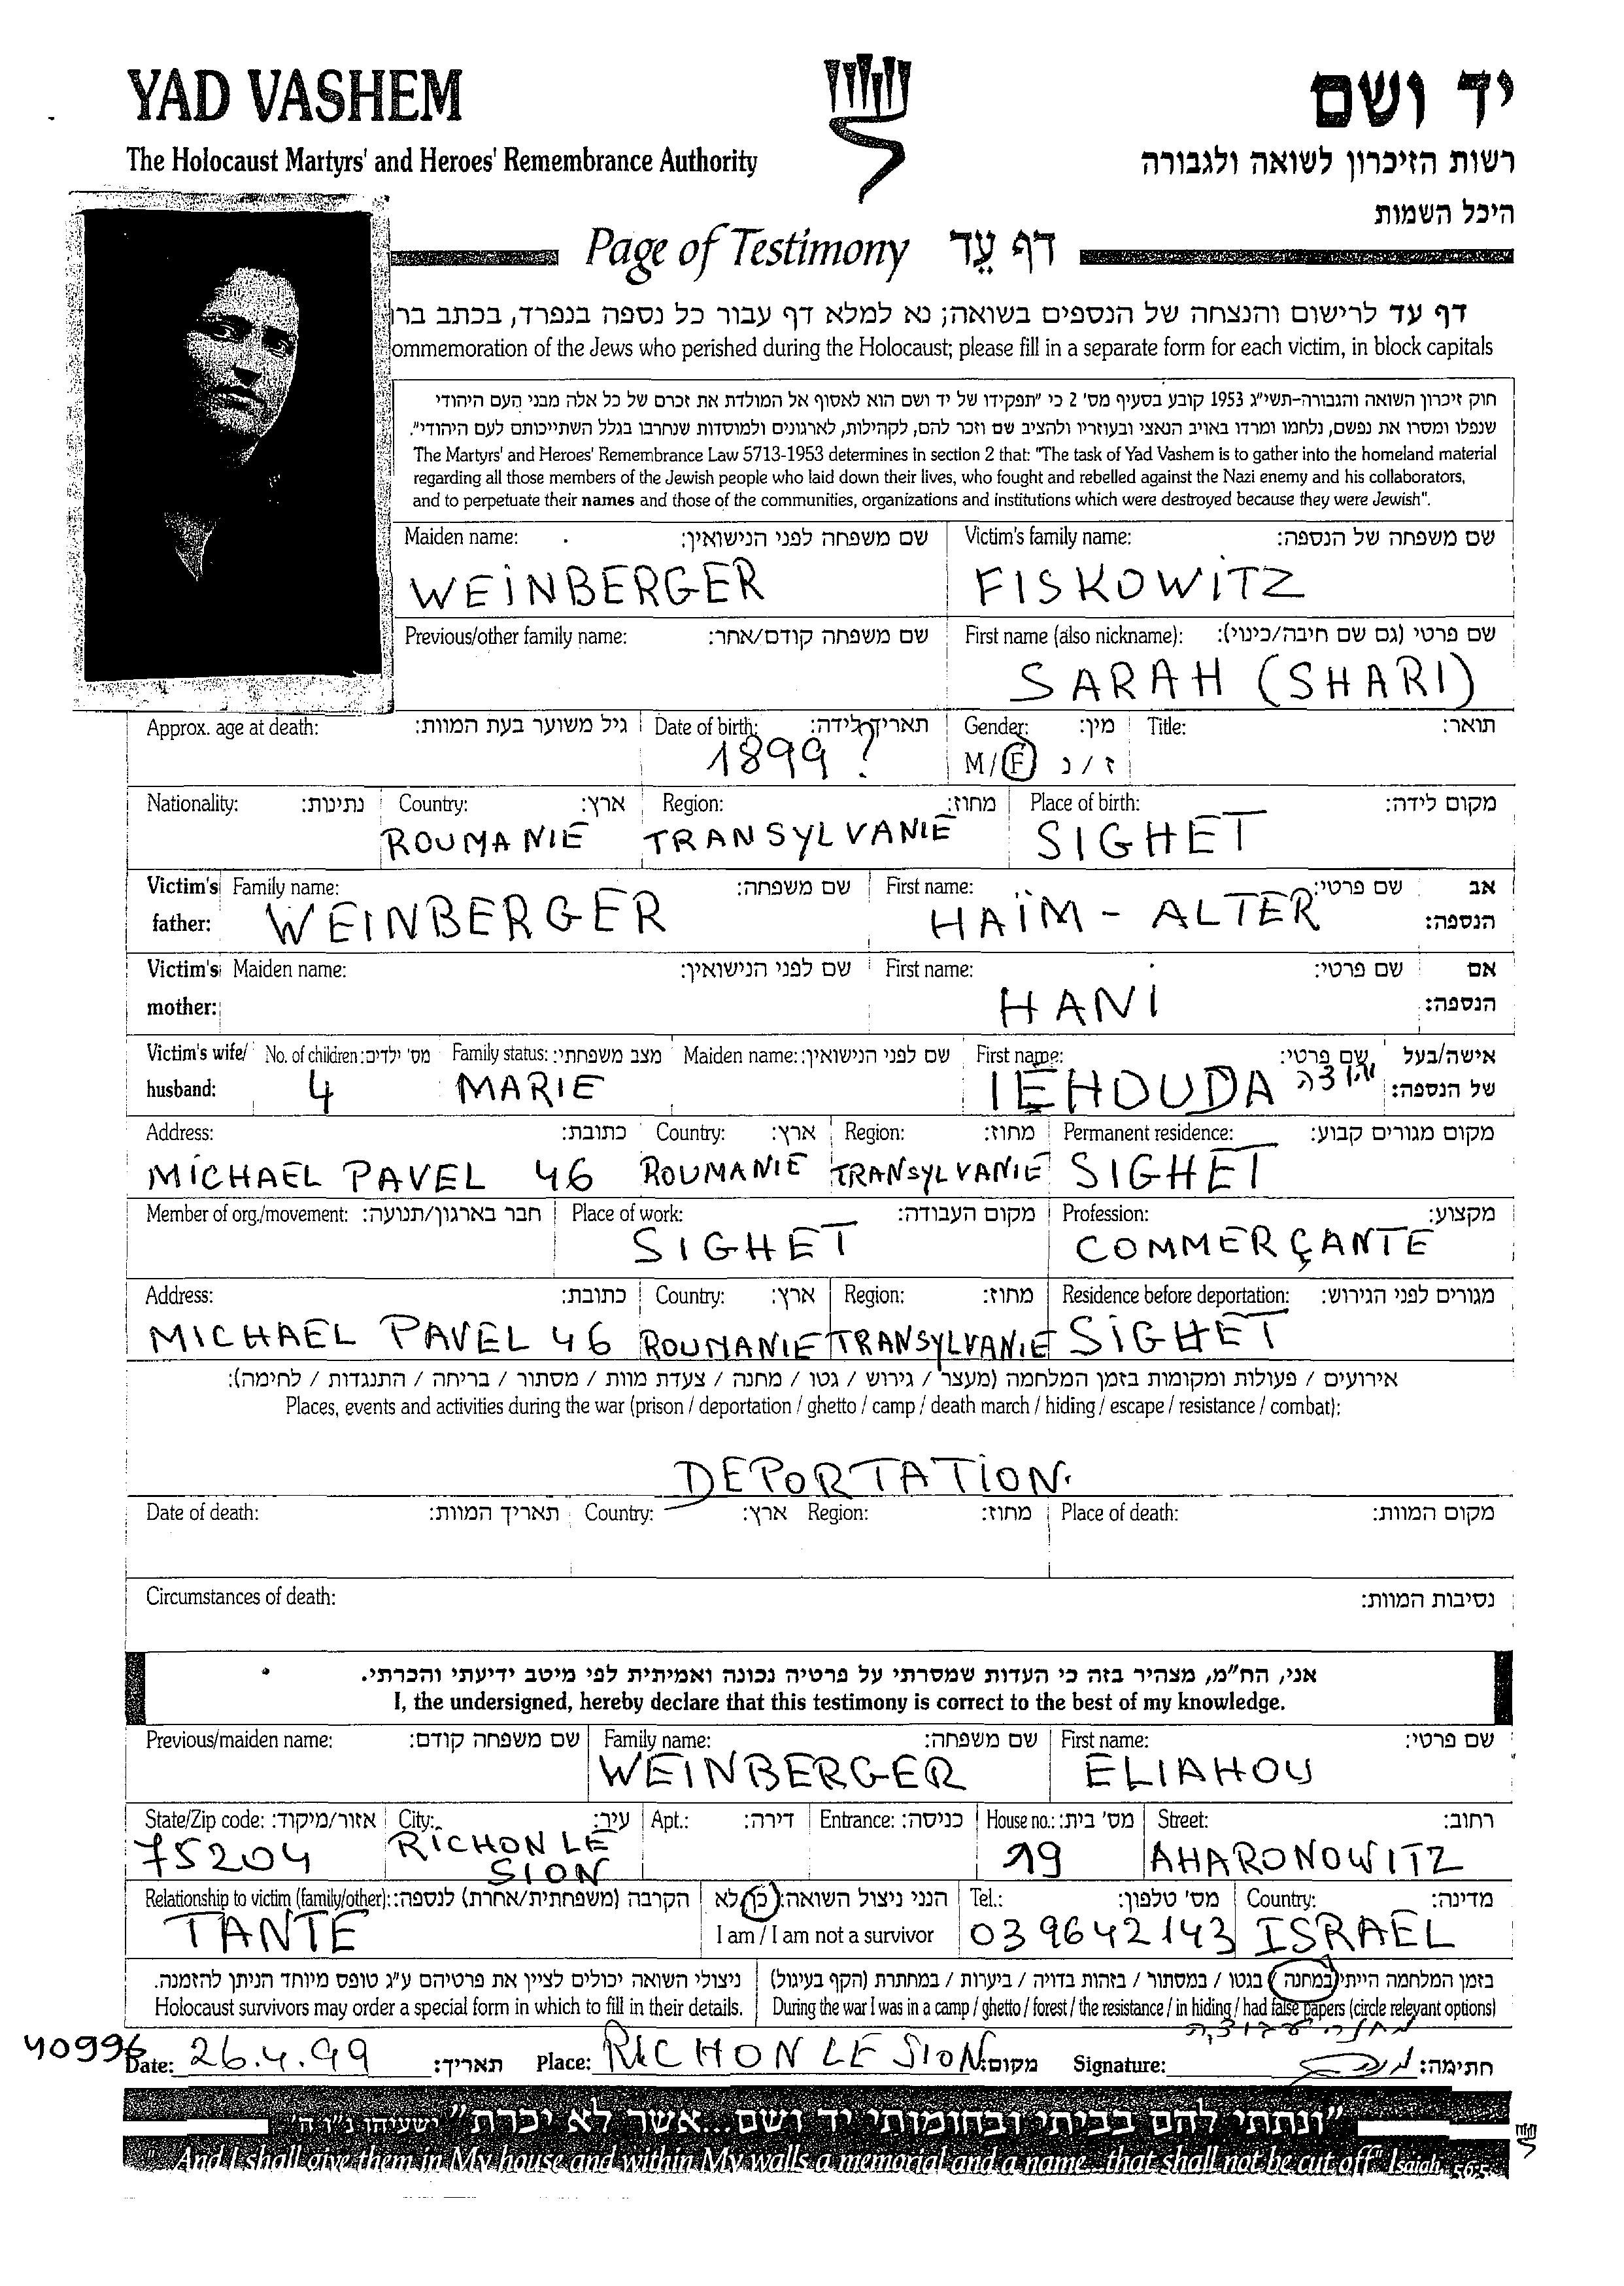 YAD VASHEM
יד ושם
The Holocaust Martyrs' and Heroes' Remembrance Authority
רשות הזיכרון לשואה ולגבורה
היכל השמות
Page of Testimony דף עֵד
דף עד לרישום והנצחה של הנספים בשואה; נא למלא דף עבור כל נספה בנפרד, בכתב ברו
ommemoration of the Jews who perished during the Holocaust; please fill in a separate form for each victim, in block capitals
חוק זיכרון השואה והגבורה-תשי״ג 1953 קובע בסעיף מס' 2 כי ״תפקידו של יד ושם הוא לאסוף אל המולדת את זכרם של כל אלה מבני העם היהודי
שנפלו ומסרו את נפשם, נלחמו ומרדו באויב הנאצי ובעוזריו ולהציב שם וזכר להם, לקהילות, לארגונים ולמוסדות שנחרבו בגלל השתייכותם לעם היהודי״.
The Martyrs' and Heroes' Remembrance Law 5713-1953 determines in section 2 that: "The task of Yad Vashem is to gather into the homeland material
regarding all those members of the Jewish people who laid down their lives, who fought and rebelled against the Nazi enemy and his collaborators,
and to perpetuate their names and those of the communities, organizations and institutions which were destroyed because they were Jewish".
Maiden name: שם משפחה לפני הנישואין: Victim's family name: שם משפחה של הנספה:
WEINBERGER FISKOWITZ
Previous/other family name: שם משפחה קודם/אחר: First name (also nickname): שם פרטי (גם שם חיבה/כינוי):
SARAH (SHARI)
Approx. age at death: גיל משוער בעת המוות: Date of birth: תאריך לידה: Gender: מין: Title: תואר:
1899 ? M/F ז/נ
Nationality: נתינות: Country: ארץ: Region: מחוז: Place of birth: מקום לידה:
ROUMANIE TRANSYLVANIE SIGHET
Victim's Family name: שם משפחה: First name: שם פרטי: אב
father: WEINBERGER HAÏM - ALTER הנספה:
Victim's Maiden name: שם לפני הנישואין: First name: שם פרטי: אם
mother: HANI הנספה:
Victim's wife/ No. of children: מס' ילדים: Family status: מצב משפחתי: Maiden name: שם לפני הנישואין: First name: שם פרטי: אישה/בעל
husband: 4 MARIE IEHOUDA יהודה של הנספה:
Address: כתובת: Country: ארץ: Region: מחוז: Permanent residence: מקום מגורים קבוע:
MICHAEL PAVEL 46 ROUMANIE TRANSYLVANIE SIGHET
Member of org./movement: חבר בארגון/תנועה: Place of work: מקום העבודה: Profession: מקצוע:
SIGHET COMMERÇANTE
Address: כתובת: Country: ארץ: Region: מחוז: Residence before deportation: מגורים לפני הגירוש:
MICHAEL PAVEL 46 ROUMANIE TRANSYLVANIE SIGHET
אירועים / פעולות ומקומות בזמן המלחמה (מעצר / גירוש / גטו / מחנה / צעדת מוות / מסתור / בריחה / התנגדות / לחימה):
Places, events and activities during the war (prison / deportation / ghetto / camp / death march / hiding / escape / resistance / combat):
DEPORTATION.
Date of death: תאריך המוות: Country: ארץ: Region: מחוז: Place of death: מקום המוות:
Circumstances of death: נסיבות המוות:
אני, הח״מ, מצהיר בזה כי העדות שמסרתי על פרטיה נכונה ואמיתית לפי מיטב ידיעתי והכרתי.
I, the undersigned, hereby declare that this testimony is correct to the best of my knowledge.
Previous/maiden name: שם משפחה קודם: Family name: שם משפחה: First name: שם פרטי:
WEINBERGER ELIAHOU
State/Zip code: אזור/מיקוד: City: עיר: Apt.: דירה: Entrance: כניסה: House no.: מס' בית: Street: רחוב:
75204 RICHON LE SION 19 AHARONOWITZ
Relationship to victim (family/other): הקרבה (משפחתית/אחרת) לנספה: הנני ניצול השואה: כן/לא Tel.: מס' טלפון: Country: מדינה:
TANTE I am / I am not a survivor 039642143 ISRAEL
ניצולי השואה יכולים לציין את פרטיהם ע״ג טופס מיוחד הניתן להזמנה. בזמן המלחמה הייתי במחנה / בגטו / במסתור / בזהות בדויה / ביערות / במחתרת (הקף בעיגול)
Holocaust survivors may order a special form in which to fill in their details. During the war I was in a camp / ghetto / forest / the resistance / in hiding / had false papers (circle relevant options)
מחנה עבודה
40996 Date: 26.4.99 תאריך: Place: RICHON LE SION מקום: Signature: חתימה:
"ונתתי להם בביתי ובחומותי יד ושם...אשר לא יכרת" ישעיהו נ״ו ה'
"And I shall give them in My house and within My walls a memorial and a name...that shall not be cut off" Isaiah 56:5